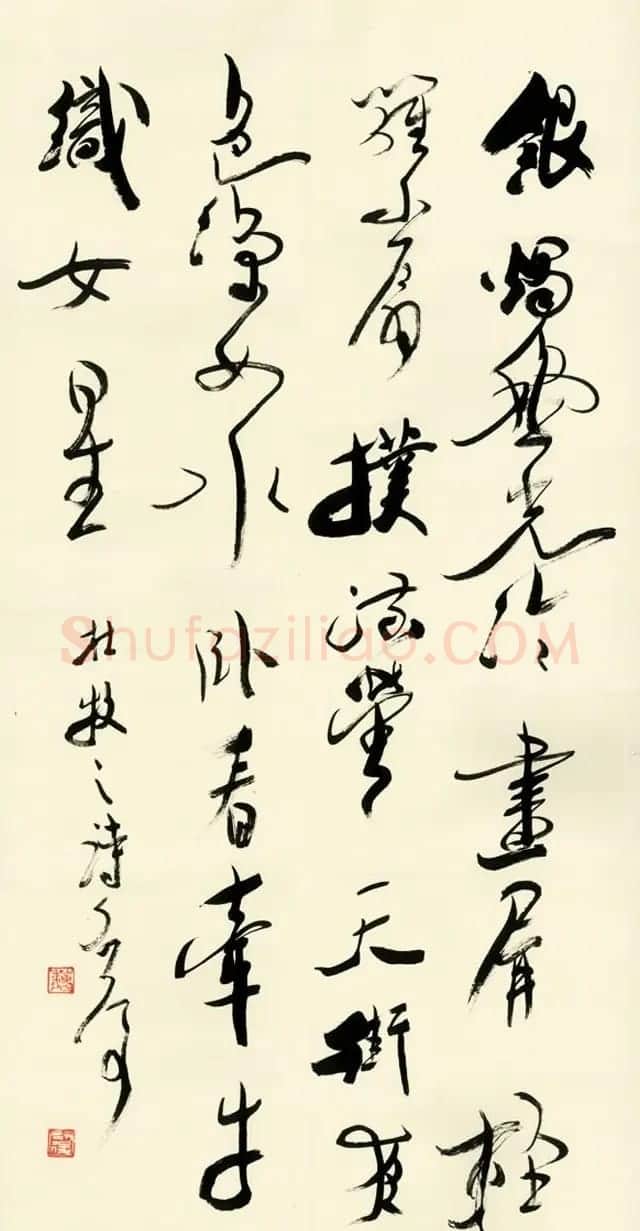 銀燭秋光冷畫屏輕
羅小扇撲流螢天街夜
色涼如水臥看牽牛
織女星
杜牧之詩
Shufaziliao.COM